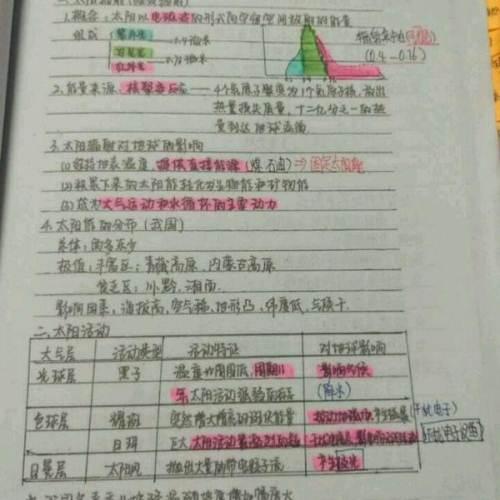 1.概念：太阳以电磁波的形式向宇宙空间放射的能量
组成 紫外光
可见光 0.4微米
红外光 0.76微米
(0.4-0.76)
2.能量来源：核聚变反应——4个氢原子聚变为1个氦原子核，放出
热量损失质量，
量到达地球表面
3.太阳辐射对地球的影响
(1)维持地表温度，提供直接能源(煤.石油)⇒固定太阳能
(2)积累下来的太阳能转化为生物能和矿物能
(3)成为大气运动和水循环的主要动力
4.太阳能的分布(我国)
总体：西多东少
极值：丰富区：青藏高原、内蒙古高原
贫乏区：川黔、湘南
影响因素：海拔高、空气稀、地形凸、纬度低、气候干
二、太阳活动
大气层 活动类型 活动特征 对地球影响
光球层 黑子 温度比周围低，周期11 影响气候
年太阳活动强弱标志 (降水)
色球层 耀斑 突然增大增亮的斑状 能量 (干扰电子)
日珥 巨大
日冕层 太阳风 抛出大量的带电粒子流 产生极光